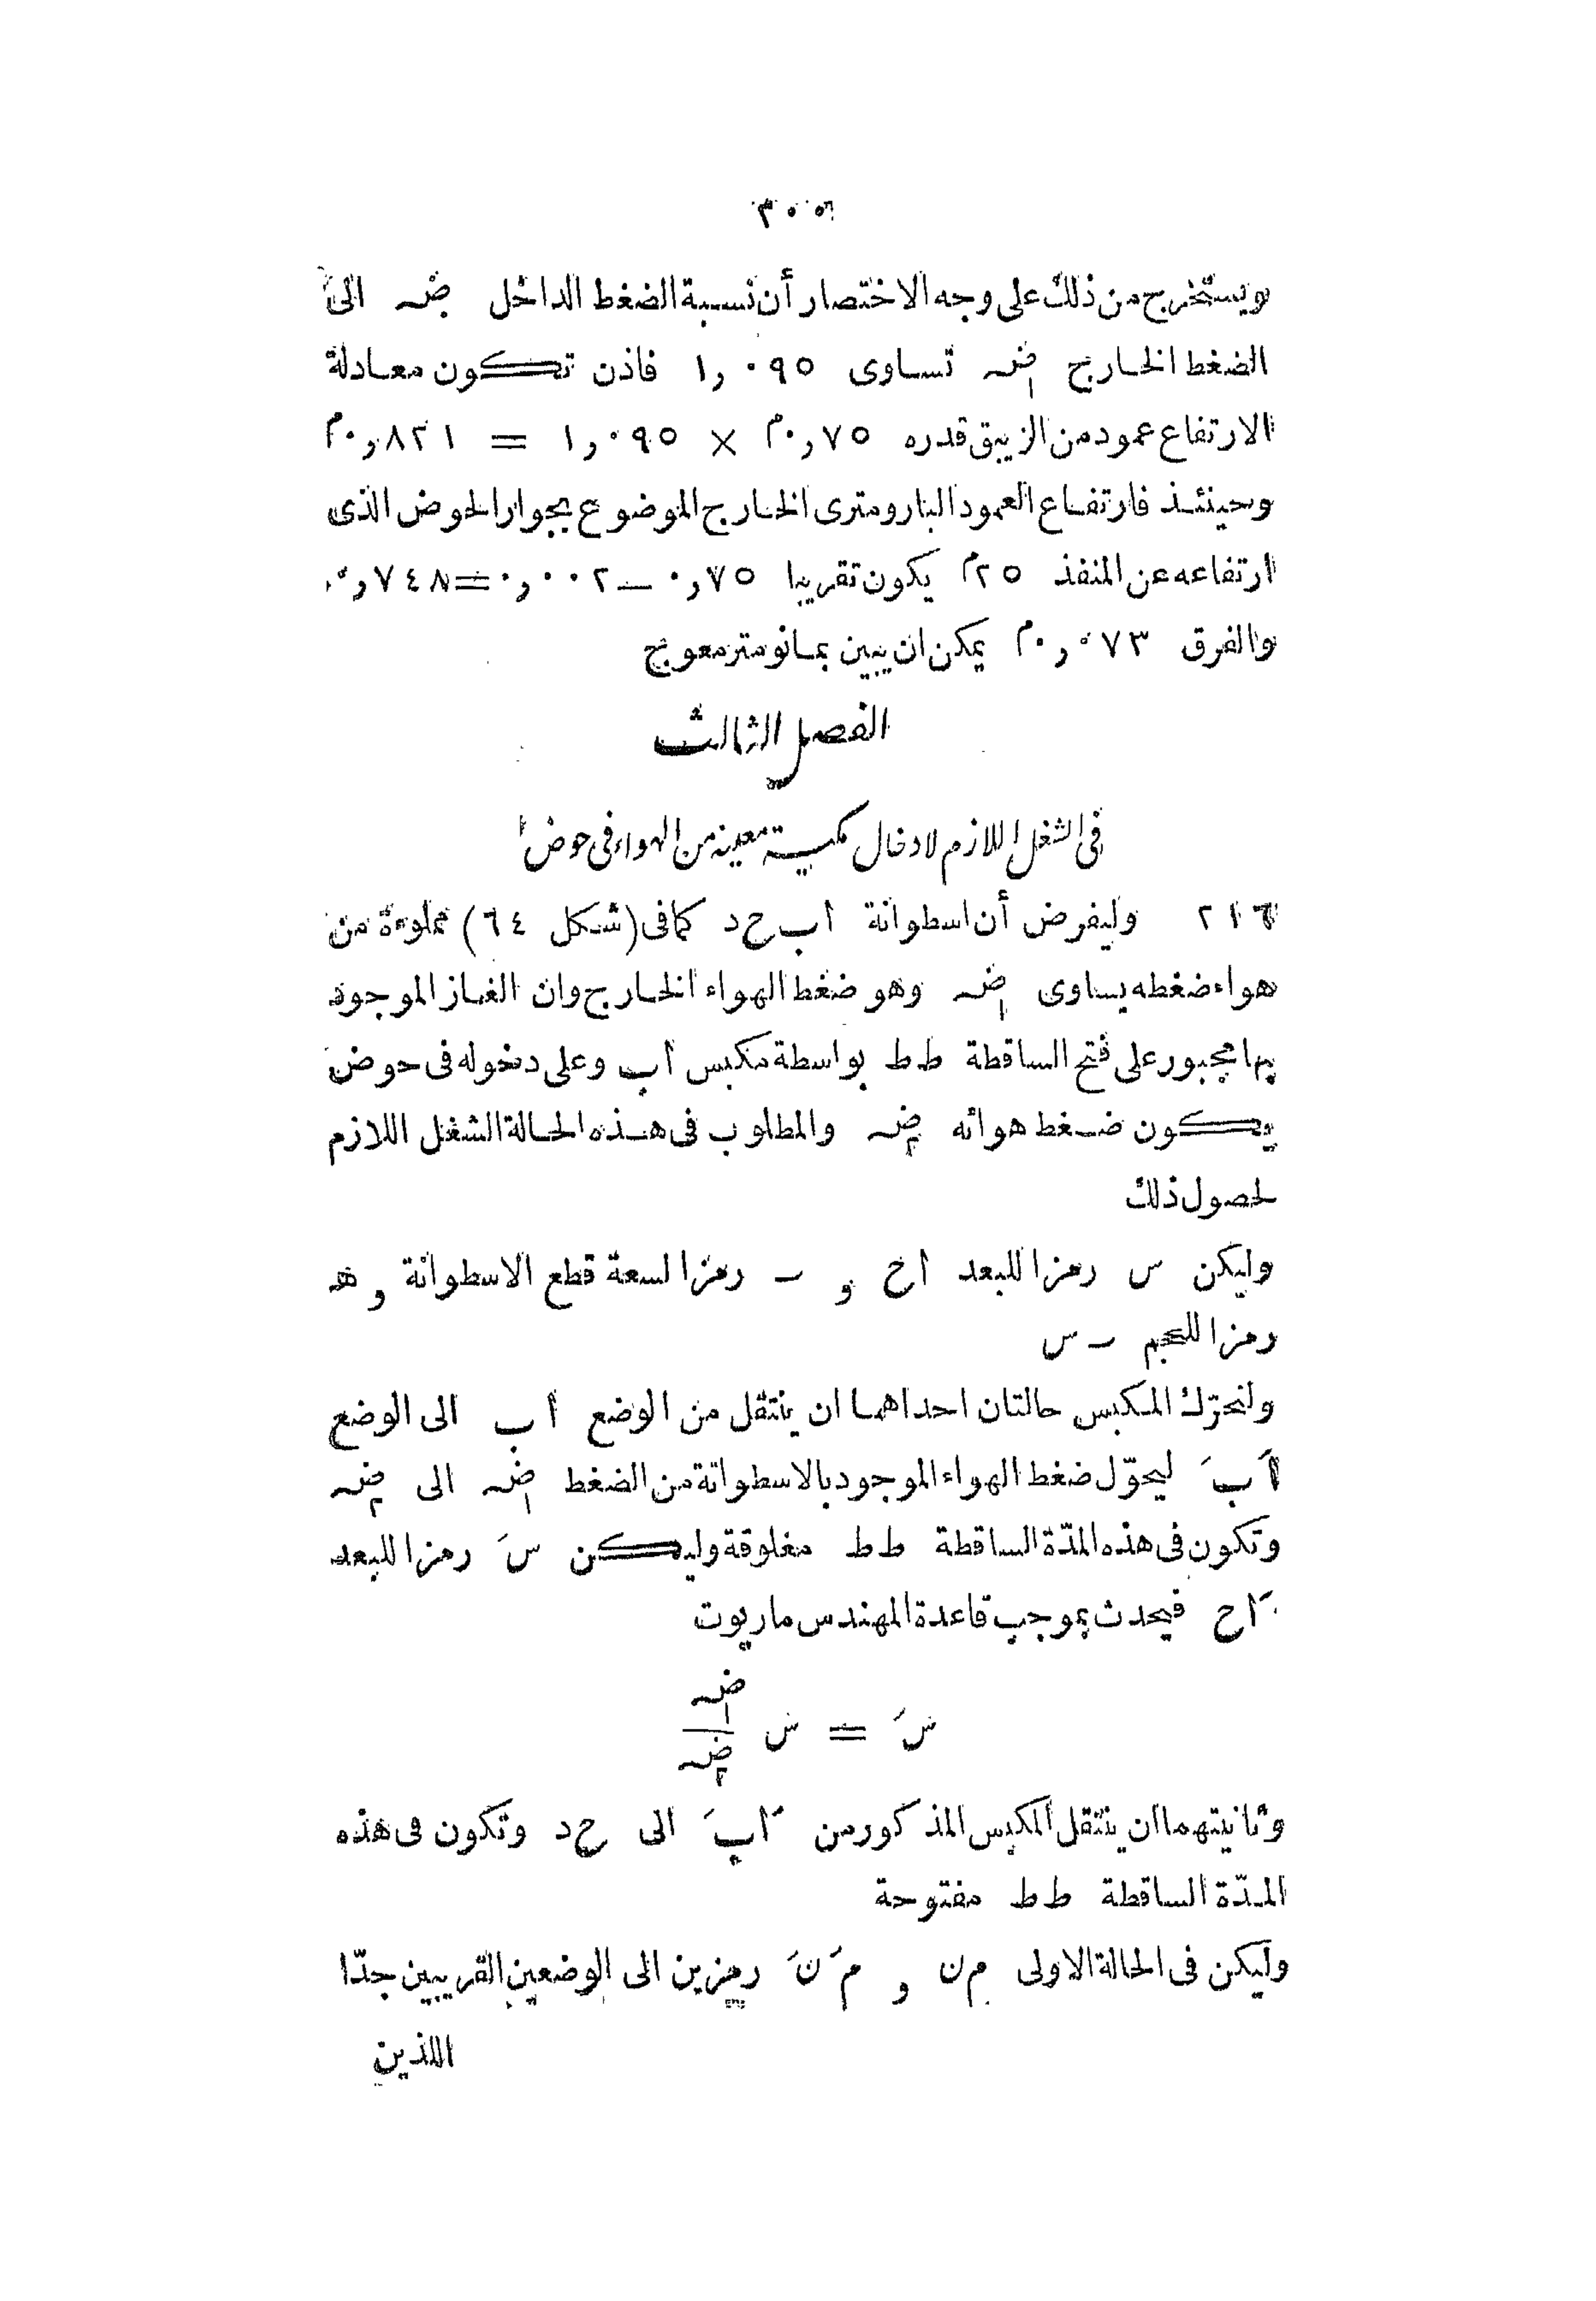 ويستخرج من ذلك على وجه الاختصار أن نسبة الضغط الداخل ضـہ الى
الضغط الخارج ضـہ١ تساوى ١,٠٩٥ فاذن تكون معادلة
الارتفاع عمود من الزيبق قدره ٠,٧٥م × ١,٠٩٥ = ٠,٨٢١م
وحينئذ فارتفاع العمود البارومترى الخارج الموضوع بجوار الحوض الذى
ارتفاعه عن المنفذ ٢٥م يكون تقريبا ٠,٧٥ — ٠,٠٠٢ = ٠,٧٤٨
والفرق ٠,٠٧٣م يمكن ان يبين بمانومتر معوج
الفصل الثالث
فى الشغل اللازم لادخال كمية معينة من الهواء فى حوض
٢١٦ وليفرض أن اسطوانة ا ب ح د كما فى (شكل ٦٤) مملوءة من
هواء ضغطه يساوى ضـہ١ وهو ضغط الهواء الخارج وان الغاز الموجود
بها مجبور على فتح الساقطة ط ط بواسطة مكبس ا ب وعلى دخوله فى حوض
يكون ضغط هوائه ضـہ٢ والمطلوب فى هذه الحالة الشغل اللازم
لحصول ذلك
وليكن س رمزا للبعد ا ح و ـ رمزا لسعة قطع الاسطوانة و هـ
رمزا للحجم ـ س
ولتحرّك المكبس حالتان احداهما ان ينتقل من الوضع ا ب الى الوضع
اَ بَ ليحوّل ضغط الهواء الموجود بالاسطوانة من الضغط ضـہ١ الى ضـہ٢
وتكون فى هذه المدّة الساقطة ط ط مغلوقة وليكن سَ رمزا للبعد
اَ ح فيحدث بموجب قاعدة المهندس ماريوت
سَ = س ضـہ١ / ضـہ٢
وثانيتهما ان ينتقل المكبس المذكور من اَ بَ الى ح د وتكون فى هذه
المدّة الساقطة ط ط مفتوحة
وليكن فى الحالة الاولى م ن و مَ نَ رمزين الى الوضعين القريبين جدّا
اللذين